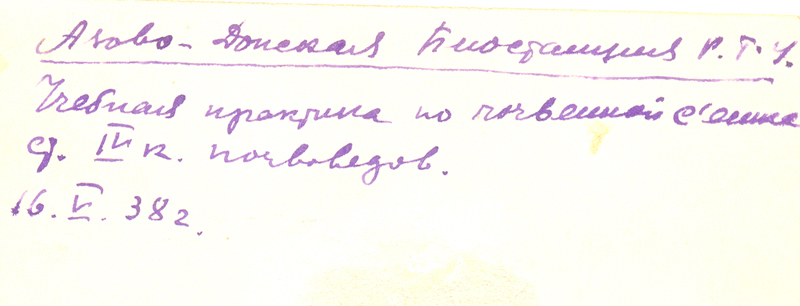 Азово-Донская Биостанция Р.Г.У.
Учебная практика по почвенной с'емке
ст. III к. почвоведов.
16. V. 38 г.